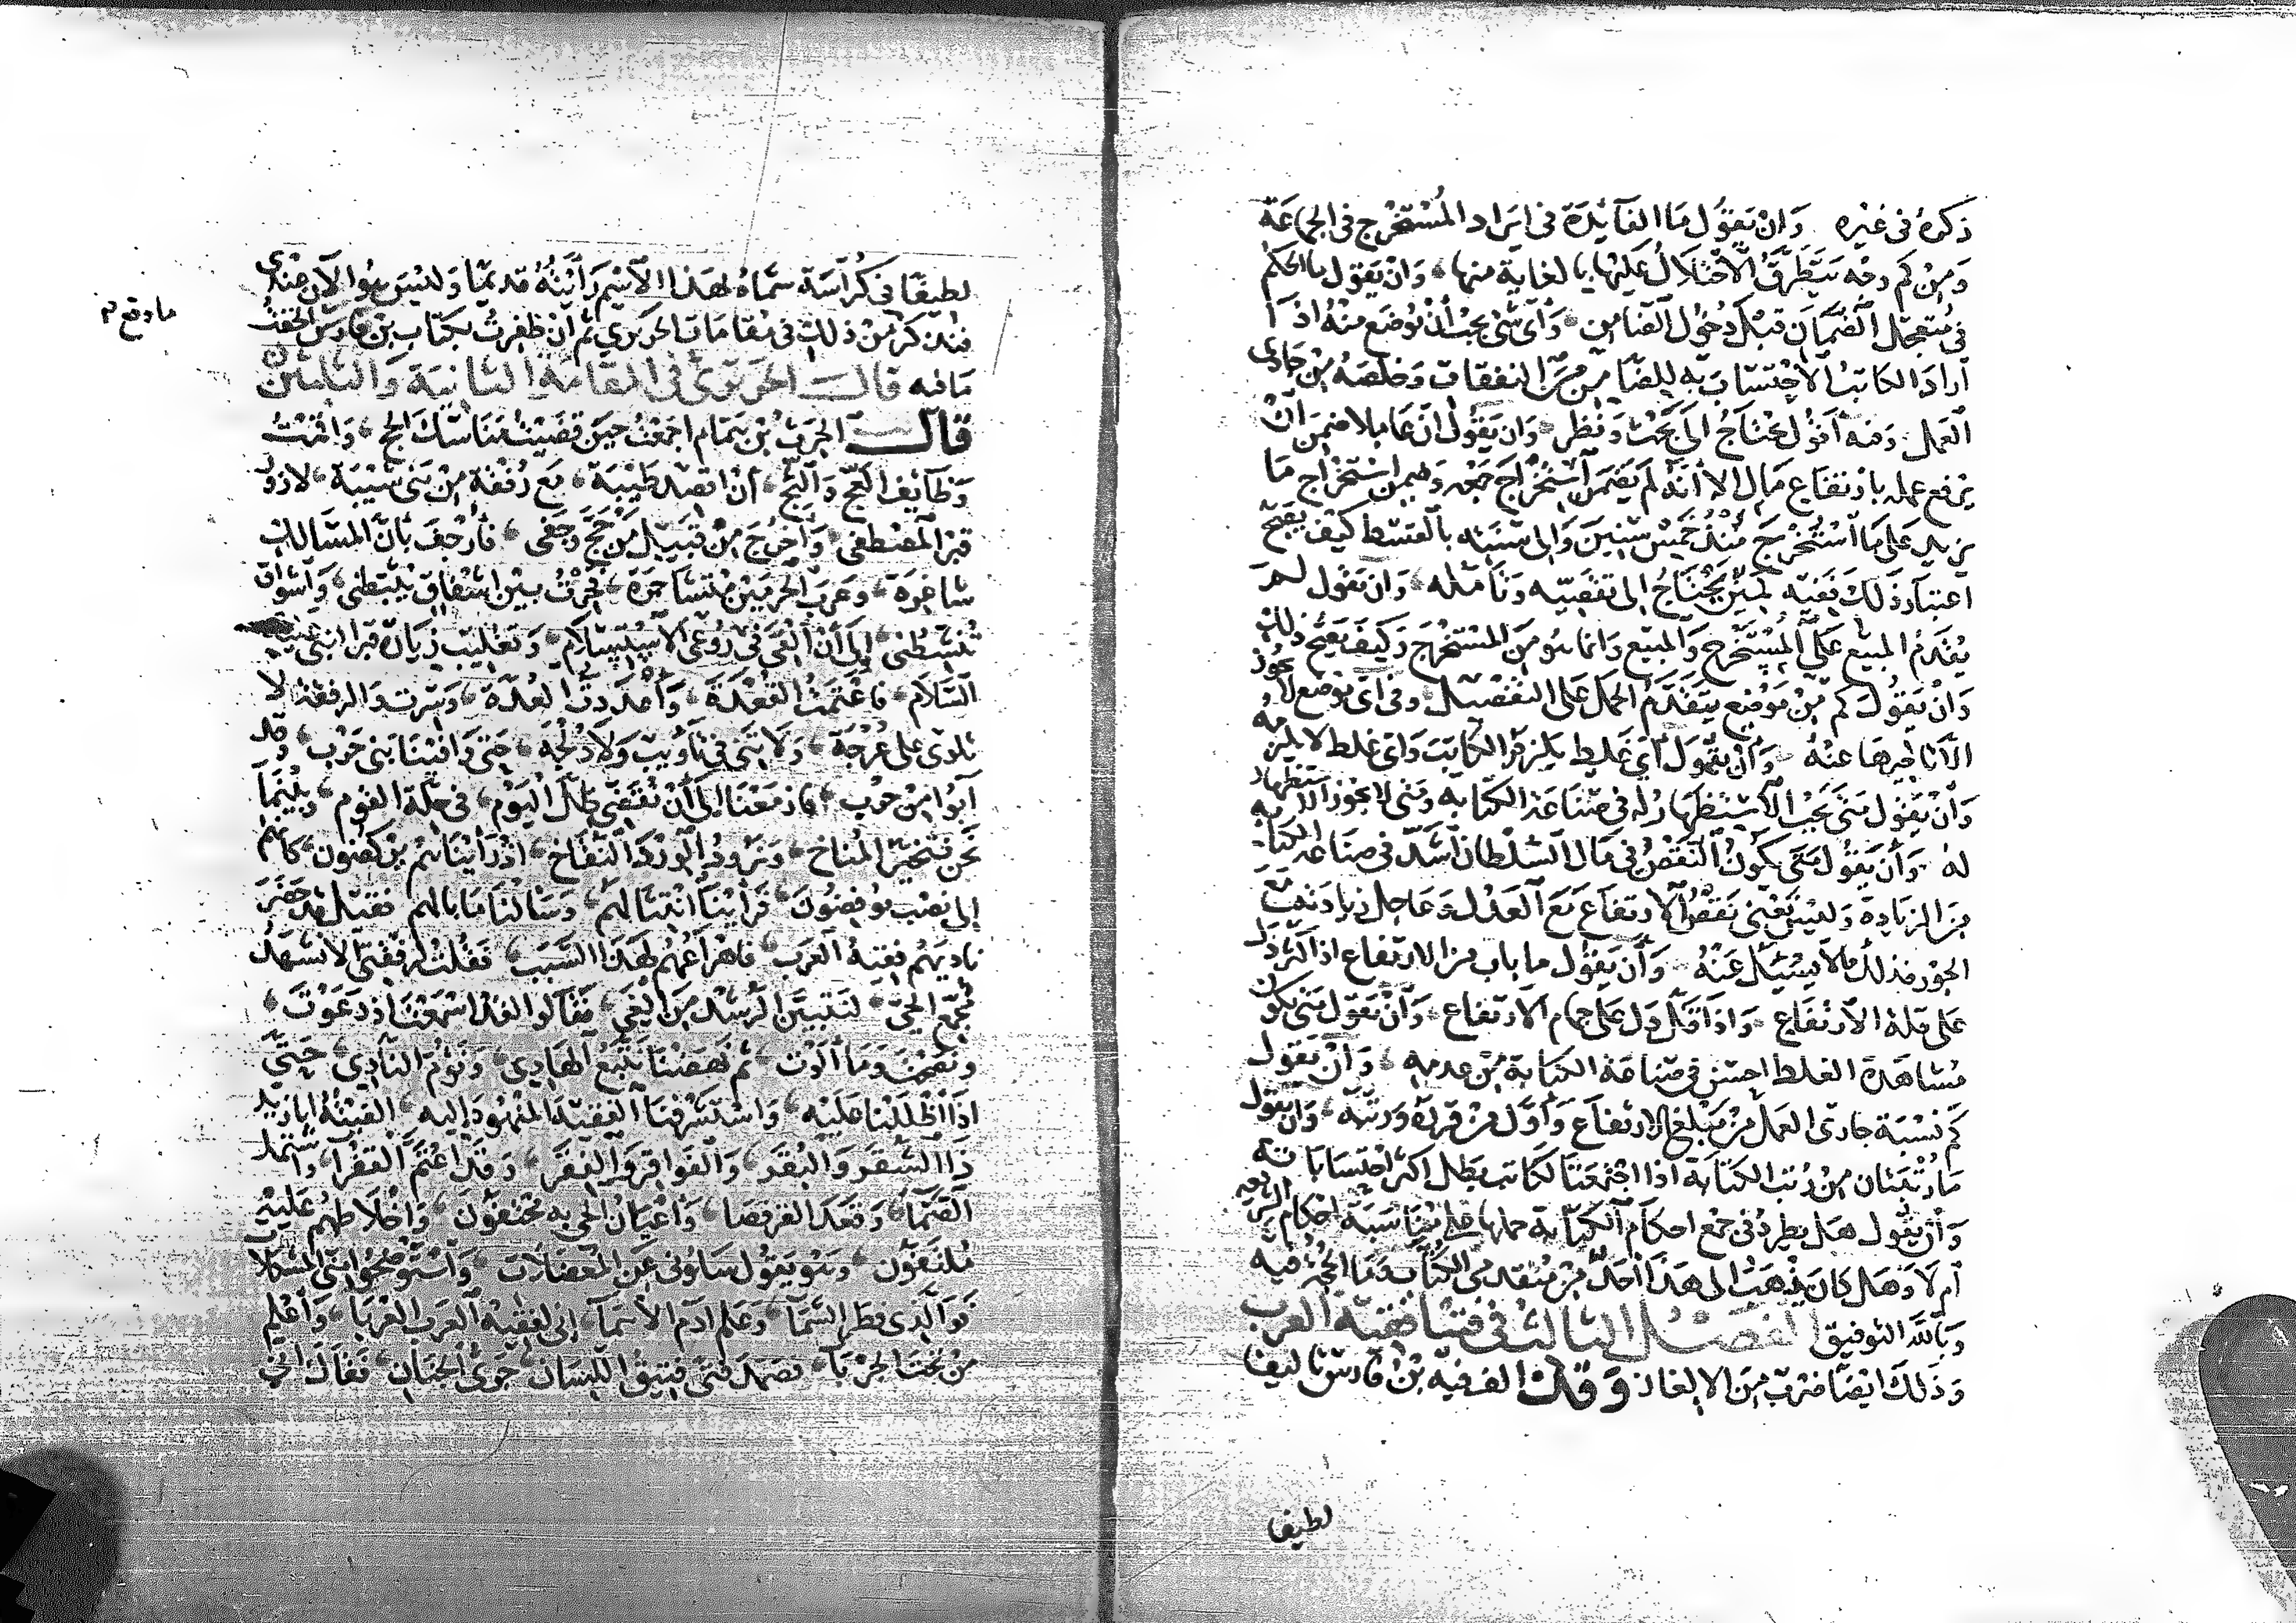 ذكره في غيره وان يقول ما الفآئدة في ايراد المستخرج في الجماعة
ومن كم وجه يتطرق الاختلال عليها بالغاية منها وان يقول ما الحكم
في متعجل الضمان قبل دخول الضامن وأي شي يجب أن يوضع منه اذا
اراد الكاتب الاحتساب به للضامن من النفقات وخلصه من جاري
العمل وفيه أقول يحتاج الى بحث ونظر وان يقول ان عاملا ضمن ان
يرفع عمله بارتفاع مال الا أنه لم يضمن استخراج جميعه وضمن استخراج ما
يزيد على ما استخرج منذ خمس سنين والى سنته بالقسط كيف يصح
اعتبار ذلك ففيه لمين يحتاج الى تقصيه وتأمله وان يقول لم
يقدم المبيع على المستخرج والمبيع وانما هو من المستخرج وكيف يصح ذلك
وان يقول كم من موضع يتقدم الجمل على التفصيل وفي أي موضع لا يجوز
الا تاخيرها عنه وأن يقول أي غلط يلزم الكاتب واي غلط لا يلزمه
وأن يقول متى يجب الاستظهار له في صناعة الكتابه ومتى لا يجوز الاستظهار
له وأن يقول متى يكون النقص في مال السلطان أشد في صناعة الكتابه
من الزيادة وليس يعني نقص الارتفاع مع العدل وعاجل زيادته مع
الجور فذلك مالا يسئل عنه وأن يقول ما باب من الارتفاع اذا كثر دل
على قلة الارتفاع واذا قل دل على جمام الارتفاع وأن يقول متى يكون
مشاهدة الغلط احسن في صناعة الكتابة من عدمه وأن يقول
كم نسبة جاري العمل من مبلغ الارتفاع وأول من قرره ورتبه وأن يقول
ما رتبتان من رتب الكتابة اذا اجتمعتا لكاتب بطل اكثر احتساباته
وأن يقول هل يطرد في جمع احكام الكتابة حملها على مناسبة احكام الشريعه
أم لا وهل كان يذهب الى هذا أحد من متقدمي الكتاب وما الحجة فيه
وبالله التوفيق الفصل الثالث في فتيا فقيه العرب
وذلك ايضا ضرب من الالغاز وقد الف فيه بن فارس تاليفا
لطيفا
لطيفا في كراسة سماه بهذا الاسم رأيته قديما وليس هو الآن عندي
فنذكر من ذلك ما وقع في مقامات الحريري ثم ان ظفرت بكتاب بن فارس الحقت
مافيه قال الحريري في المقامة الثانية والثلثين
قال الحرث بن همام اجمعت حين قضيت مناسك الحج وأقمت
وظآئف العج والثج أن اقصد طيبة مع رفقة من بني شيبة لازور
قبر المصطفى وأخرج من قبيل من حج وجفى فأرجف بأن المسالك
شاغرة وعرب الحرمين متشاجرة فحرت بين اشفاق يثبطني وأشواق
تنشطني الى أن القى في روعي الاستسلام وتغليب زيارة قبر النبي عليه
السلام فاعتمت القعدة وأعددت العدة وسرت والرفقة لا
نلوى على عرجة ولا نني في تأويب ولا دلجة حتى وافينا بني حرب وقد
آبوا من حرب فازمعنا الى أن نقضي ظل اليوم في حلة القوم وبينما
نحن نتخير المناخ ونرود الورد النقاخ اذ رأيناهم يركضون كانهم
إلى نصب يوفضون فرابنا انثيالهم وسألنا ما بالهم فقيل قد حضر
ناديهم فقيه العرب فاهراعهم لهذا السبب فقلت لرفقتي الا نشهد
مجمع الحي لنتبين الرشد من الغي فقالوا لقد اسمعت اذ دعوت
ونصحت وما ألوت ثم نهضنا نتبع الهادي ونؤم النادي حتى
اذا اظللنا عليه واستشرفنا الفقيه المنهود اليه الفيته ابا زيد
ذا الشقر والبقر والفواقر والفقر وقد اعتم القفدا واشتمل
الصما وقعد القرفصا وأعيان الحي به محتفون وأخلاطهم عليه
ملتفون وهو يقول سلوني عن المعضلات واستوضحوا مني المشكلات
فوالذي فطر السما وعلم آدم الأسما إني لفقيه العرب العربا وأعلم
من تحت الجربا فصمد فتى فتيق اللسان جرى الجنان فقال اني